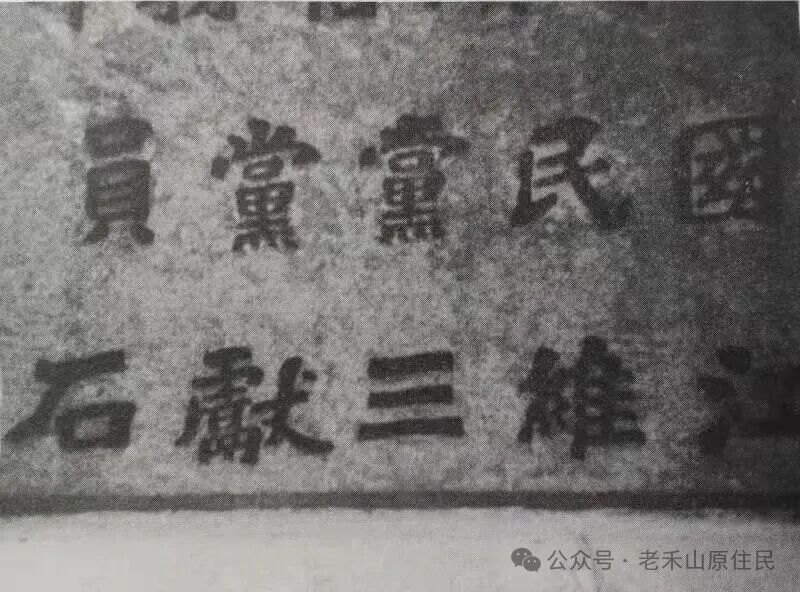 國民黨黨員
江維三獻石
公众号 · 老禾山原住民